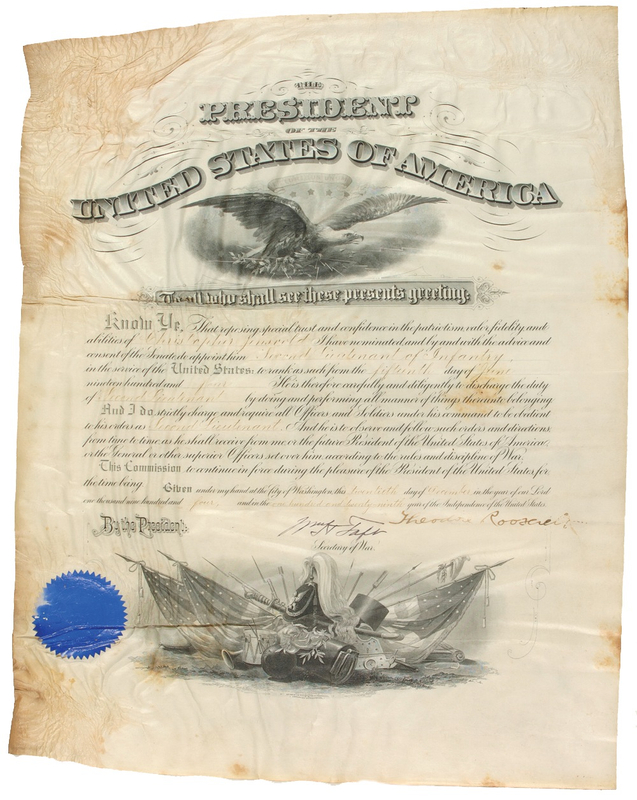 THE
PRESIDENT
OF THE
UNITED STATES OF AMERICA
To all who shall see these presents greeting:
Know Ye, That reposing special trust and confidence in the patriotism, valor, fidelity and
abilities of Christopher I have nominated and by and with the advice and
consent of the Senate do appoint him Second Lieutenant of Infantry
in the service of the United States: to rank as such from the fifteenth day of June
nineteen hundred and four. He is therefore carefully and diligently to discharge the duty
of Second Lieutenant by doing and performing all manner of things thereunto belonging
And I do strictly charge and require all Officers and Soldiers under his command to be obedient
to his orders as Second Lieutenant. And he is to observe and follow such orders and directions
from time to time as he shall receive from me or the future President of the United States of America
or the General or other superior Officers set over him according to the rules and discipline of War.
This Commission to continue in force during the pleasure of the President of the United States for
the time being.
Given under my hand at the City of Washington, this twentieth day of December in the year of our Lord
one thousand nine hundred and four, and in the one hundred and twenty ninth year of the Independence of the United States
By the President:
Wm H Taft
Theodore Roosevelt
Secretary of War